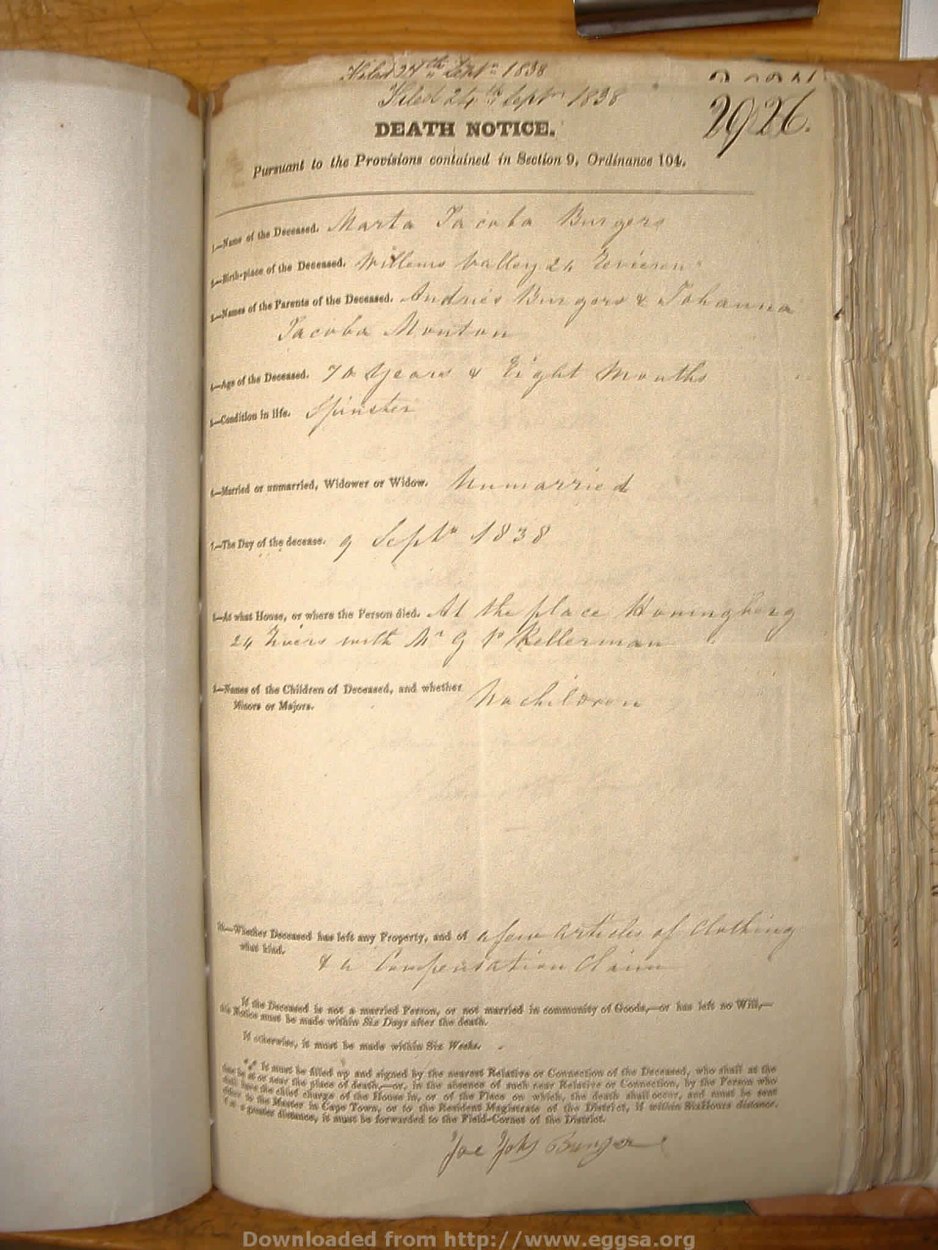 Filed 24th Septr 1838
Filed 24th Septr 1838
2926.
DEATH NOTICE.
Pursuant to the Provisions contained in Section 9, Ordinance 104.
1.—Name of the Deceased. Marta Jacoba Burgers
2.—Birth-place of the Deceased. Willems Valley 24
3.—Names of the Parents of the Deceased. Andries Burgers & Johanna
Jacoba Mouton
4.—Age of the Deceased. 70 Years & Eight Months
5.—Condition in life. Spinster
6.—Married or unmarried, Widower or Widow. Unmarried
7.—The Day of the decease. 9 Septr 1838
8.—At what House, or where the Person died. At the place Honingberg
24 Rivers with Mr G Kellerman
9.—Names of the Children of Deceased, and whether
Minors or Majors.
No children
10.—Whether Deceased has left any Property, and of
what kind.
a few articles of Clothing
& a Compensation Claim
If the Deceased is not a married Person, or not married in community of Goods,—or has left no Will,—
this Notice must be made within Six Days after the death.
If otherwise, it must be made within Six Weeks.
*** It must be filled up and signed by the nearest Relative or Connection of the Deceased, who shall at the
time be at or near the place of death,—or, in the absence of such near Relative or Connection, by the Person who
shall have the chief charge of the House in, or of the Place on which, the death shall occur, and must be sent
either to the Master in Cape Town, or to the Resident Magistrate of the District, if within Six Hours distance.
For a greater distance, it must be forwarded to the Field-Cornet of the District.
Downloaded from http://www.eggsa.org